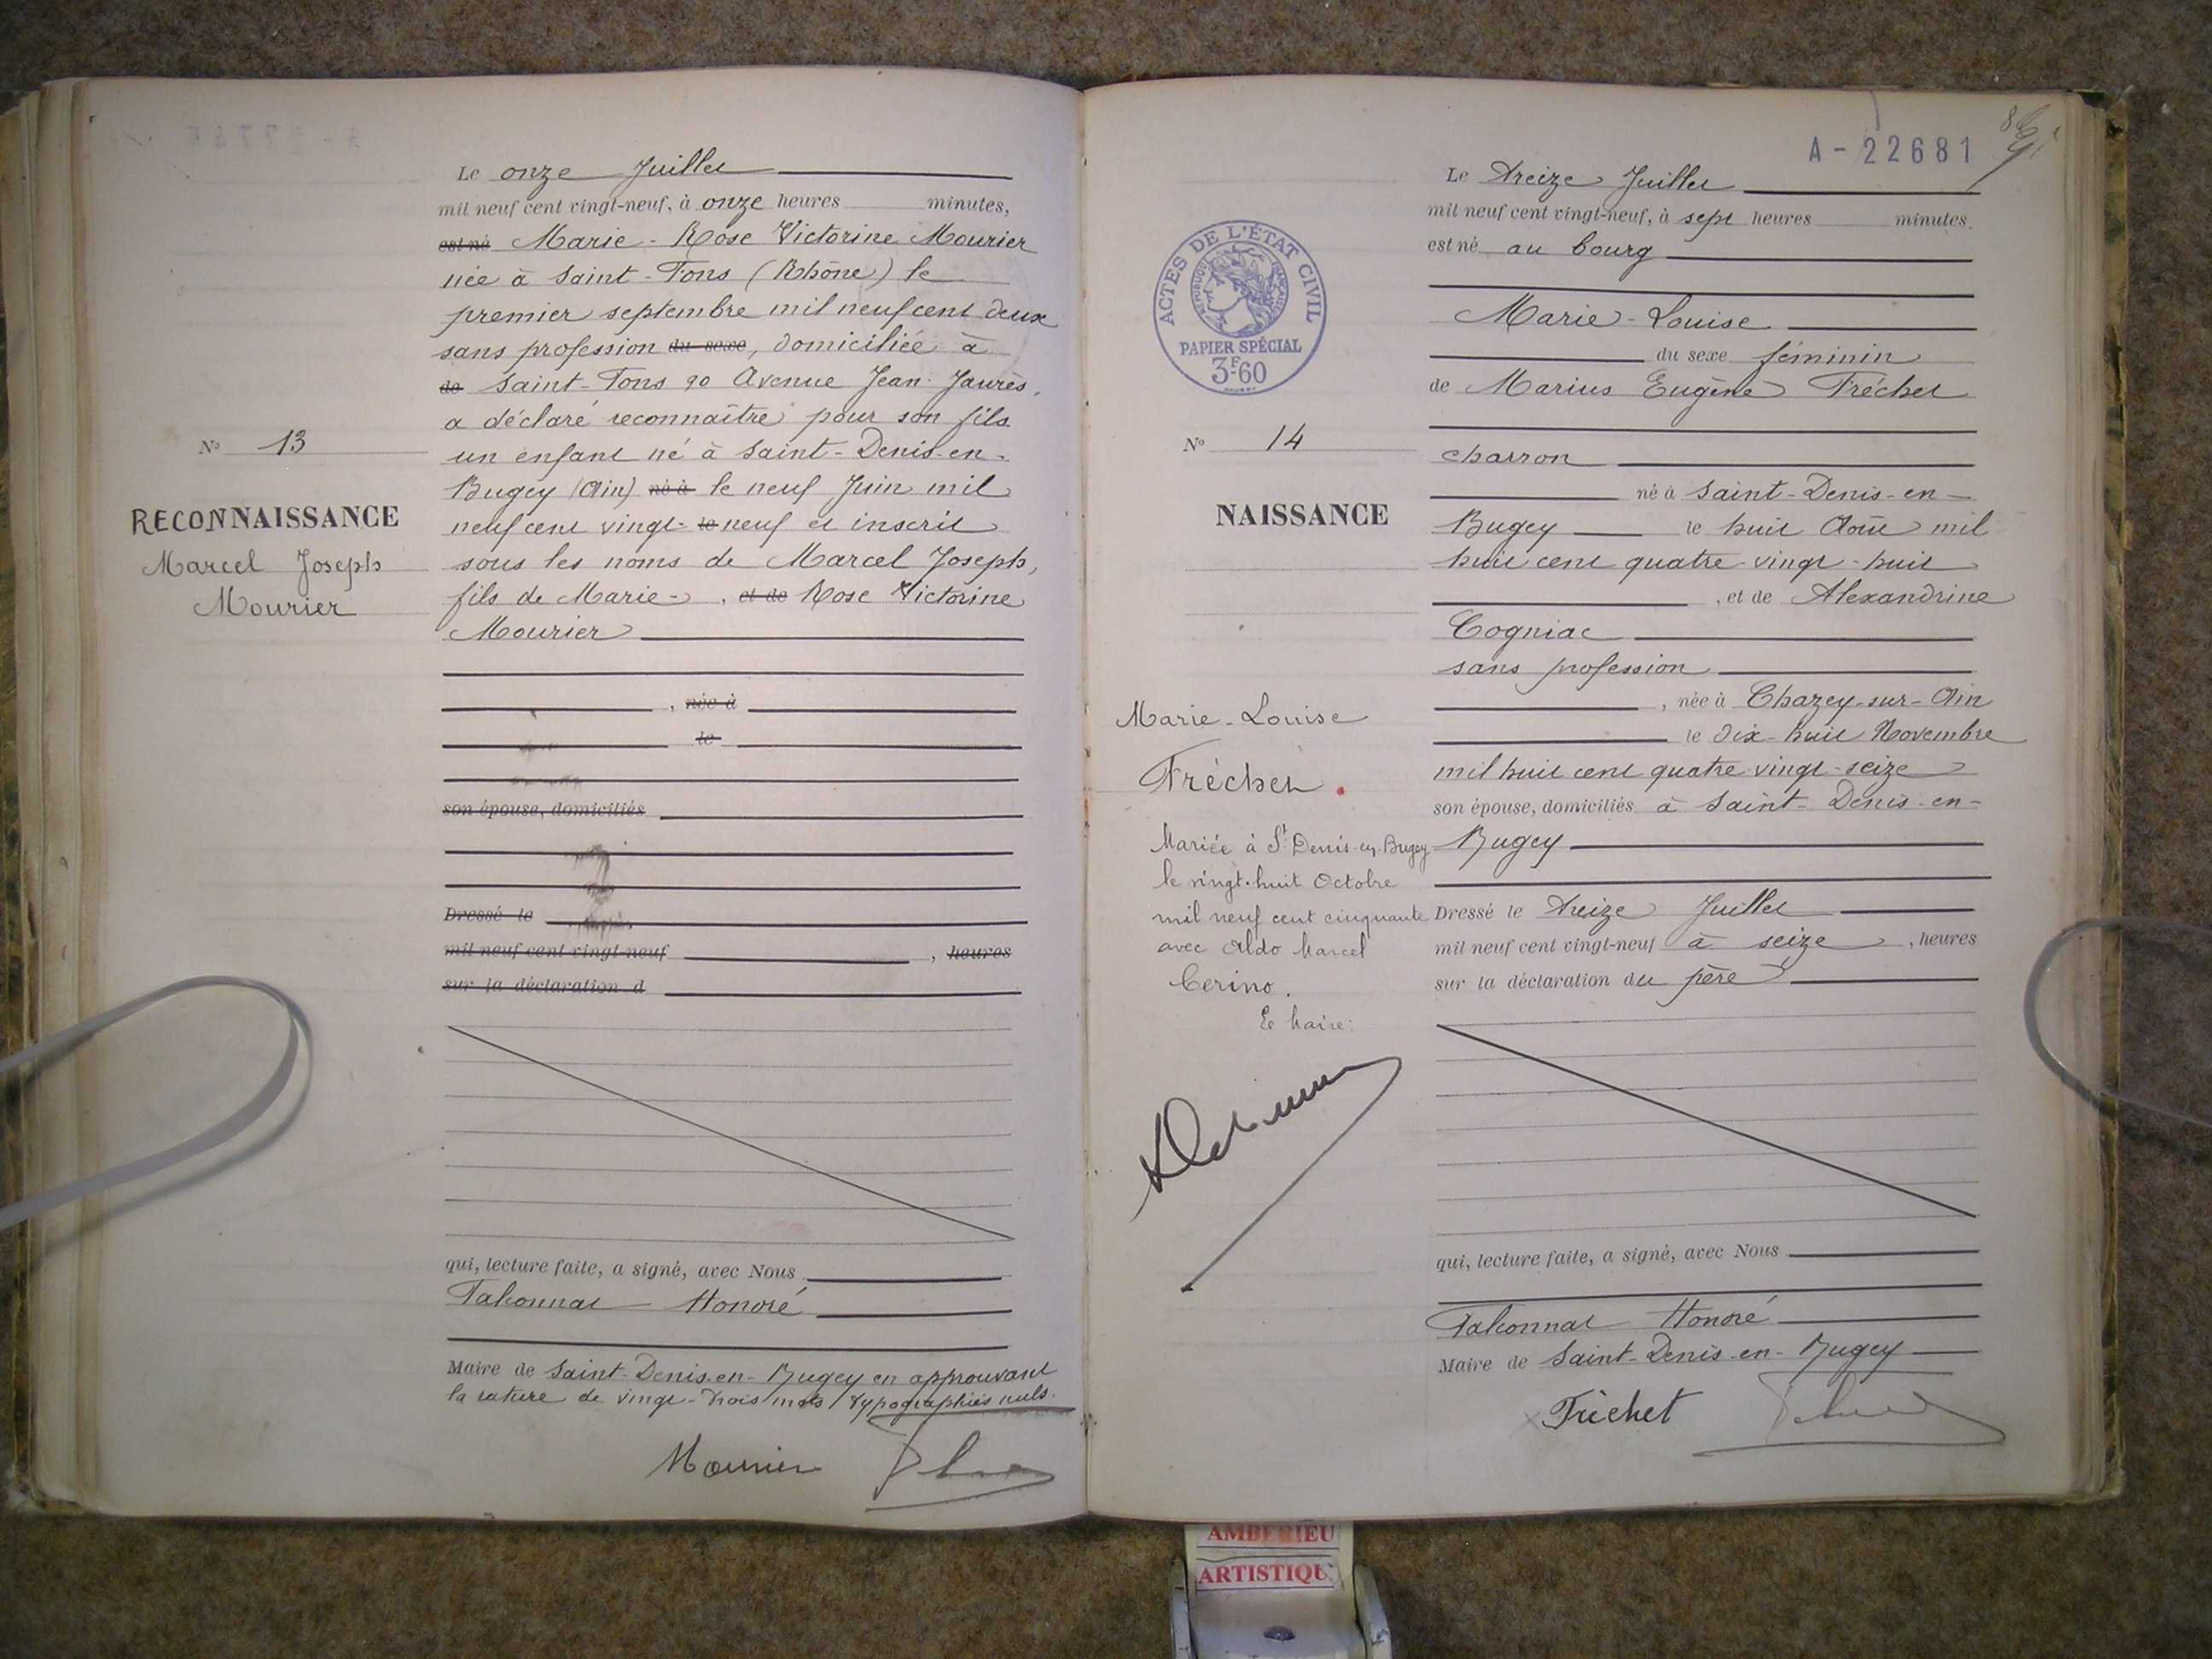 Le onze Juillet
mil neuf cent vingt-neuf, à onze heures minutes,
est né Marie-Rose Victorine Mourier
née à Saint-Fons (Rhône) le
premier septembre mil neuf cent deux
sans profession du sexe, domiciliée à
de Saint-Fons 90 Avenue Jean Jaurès,
a déclaré reconnaître pour son fils
un enfant né à Saint-Denis-en-
Bugey (Ain) né à le neuf Juin mil
neuf cent vingt- le neuf et inscrit
sous les noms de Marcel Joseph,
fils de Marie- , et de Rose Victorine
Mourier
, née à
le
son épouse, domiciliés
Dressé le
mil neuf cent vingt-neuf , heures
sur la déclaration d
qui, lecture faite, a signé, avec Nous
Falconnat Honoré
Maire de Saint-Denis-en-Bugey en approuvant
la rature de vingt-trois mots typographiés nuls.
Mourier
N° 13
RECONNAISSANCE
Marcel Joseph
Mourier
A-22681
Le treize Juillet
mil neuf cent vingt-neuf, à sept heures minutes.
est né au bourg
Marie-Louise
du sexe féminin
de Marius Eugène Fréchet
charron
né à Saint-Denis-en-
Bugey le huit Août mil
huit cent quatre-vingt-huit
, et de Alexandrine
Cogniac
sans profession
, née à Chazey-sur-Ain
le dix-huit Novembre
mil huit cent quatre-vingt-seize
son épouse, domiciliés à Saint-Denis-en-
Bugey
Dressé le treize Juillet
mil neuf cent vingt-neuf à seize , heures
sur la déclaration du père
qui, lecture faite, a signé, avec Nous
Falconnat Honoré
Maire de Saint-Denis-en-Bugey
Fréchet
ACTES DE L'ÉTAT CIVIL
RÉPUBLIQUE FRANÇAISE
PAPIER SPÉCIAL
3F60
N° 14
NAISSANCE
Marie-Louise
Fréchet.
Mariée à St Denis-en-Bugey
le vingt-huit Octobre
mil neuf cent cinquante
avec Aldo Marcel
Cerino.
Le Maire:
AMBERIEU
ARTISTIQU